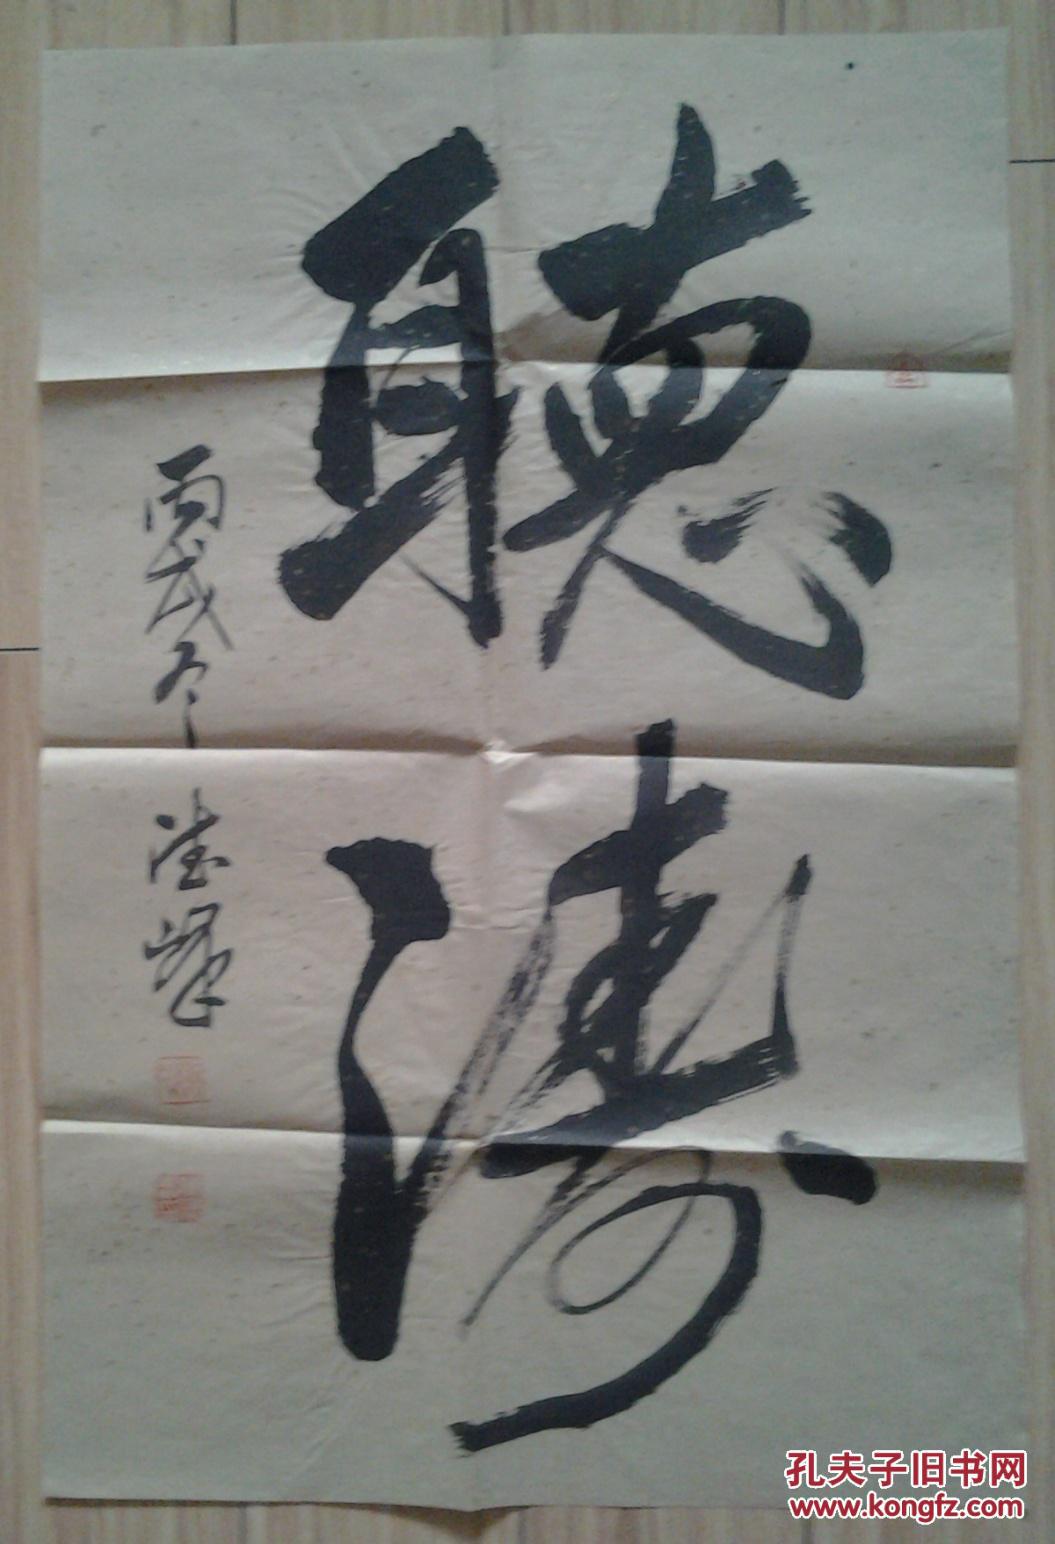 聽濤
丙戌冬 德峰
孔夫子旧书网
www.kongfz.com